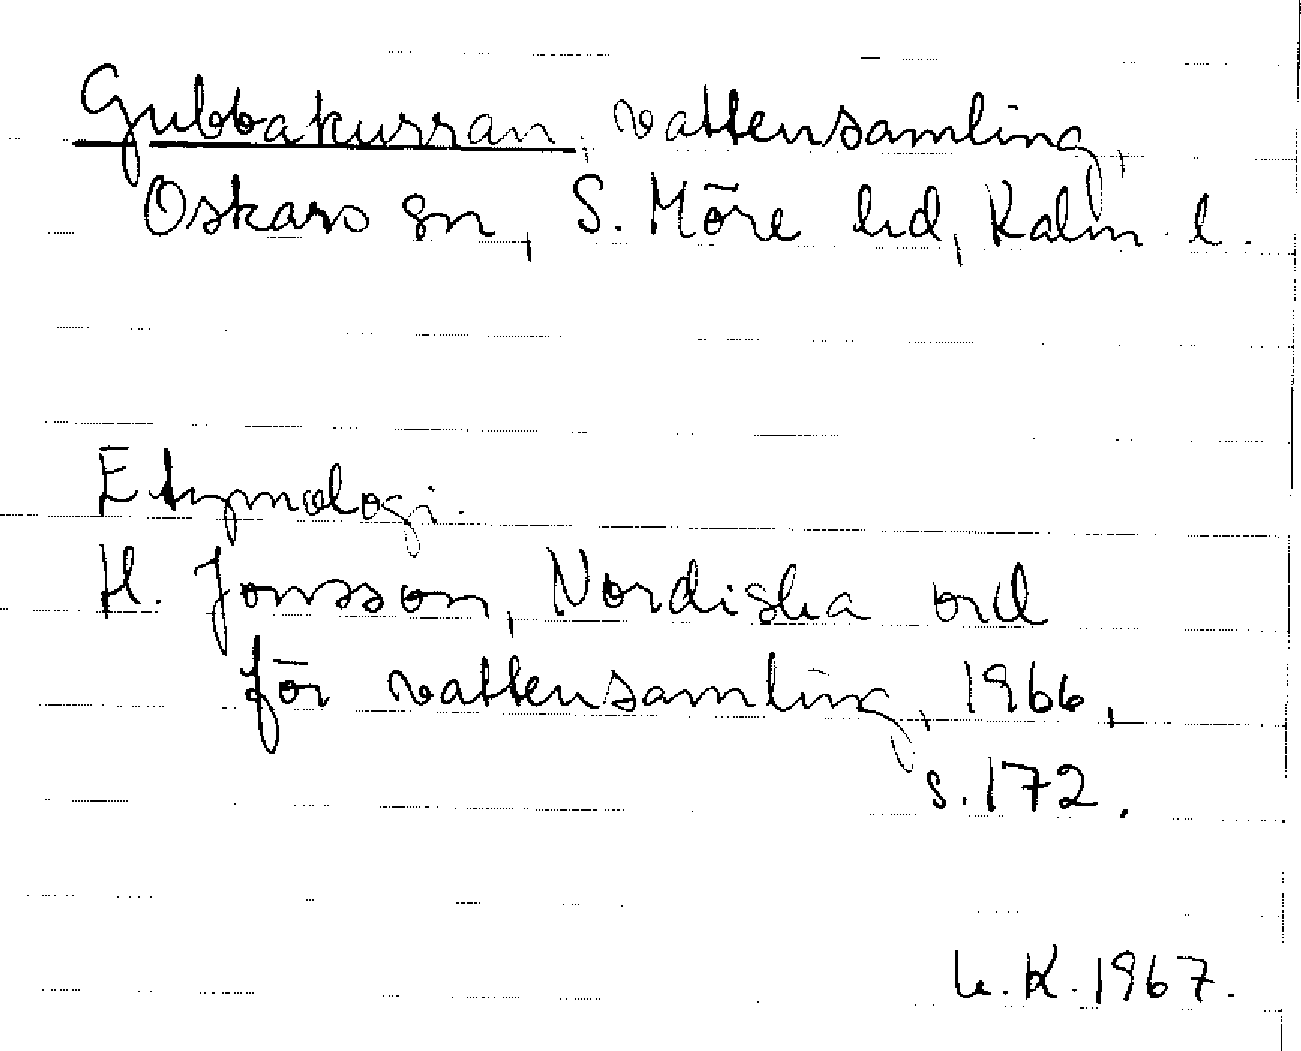 Gubbakurran, vattensamling,
Oskars sn, S. Möre hd, Kalm. l.
Etymologi.
H. Jonsson, Nordiska ord
för vattensamling, 1966,
s. 172.
K. 1967.